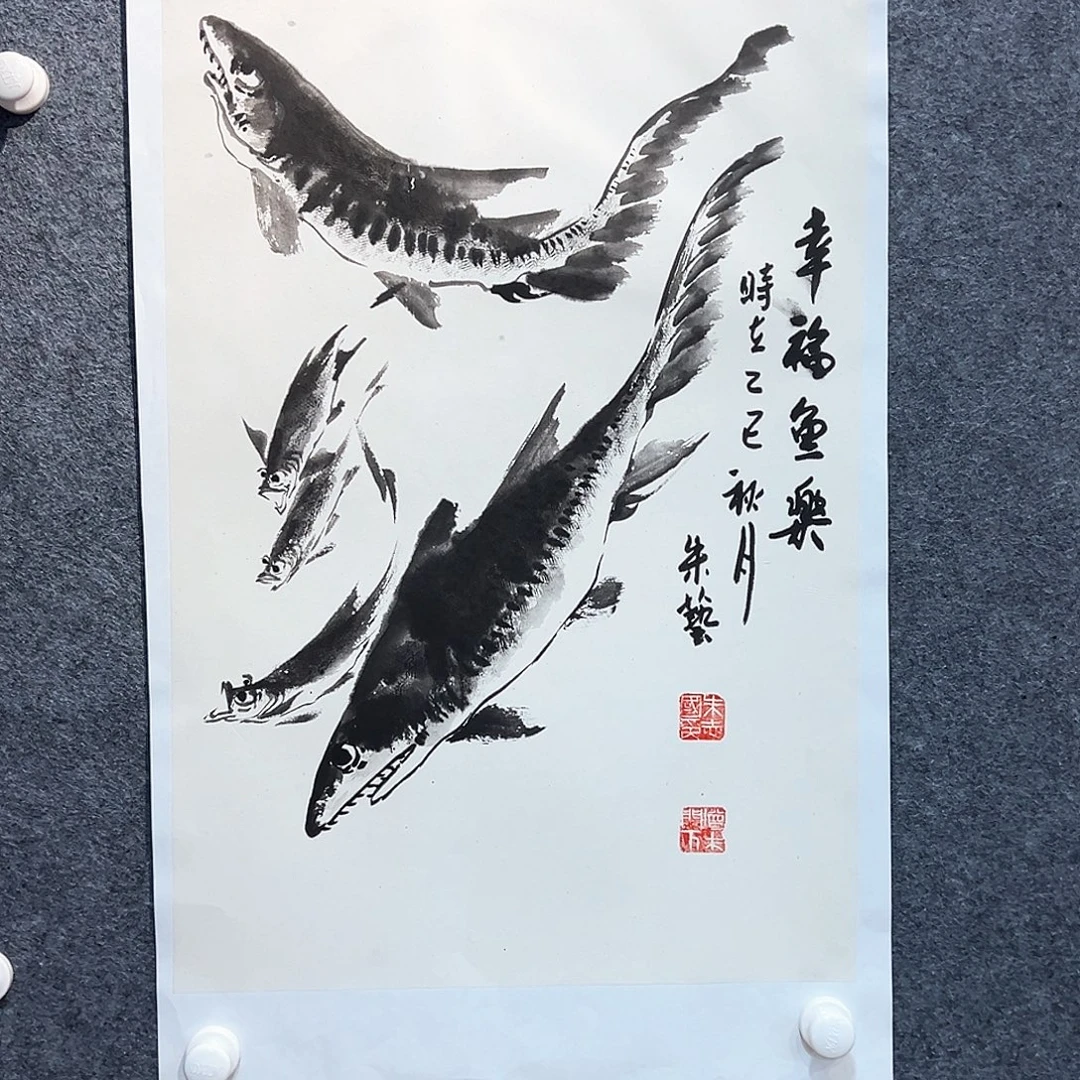 幸福魚樂
時在乙巳秋月
朱藝
朱志國印